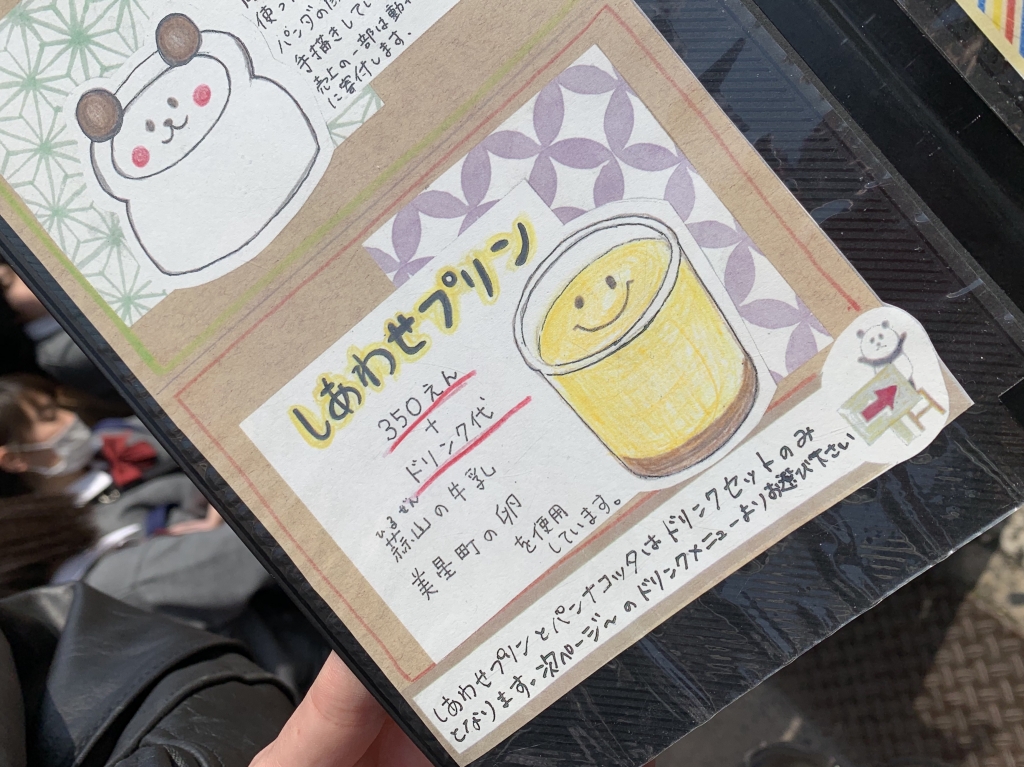 使っ
パンダの
手描きしてい
売上の一部は動
に寄付します。
しあわせプリン
350えん
+
ドリンク代
ひるぜん
蒜山の牛乳
美星町の卵
を使用
しています。
しあわせプリンとパンナコッタはドリンクセットのみ
となります。次ページ〜のドリンクメニューよりお選び下さい